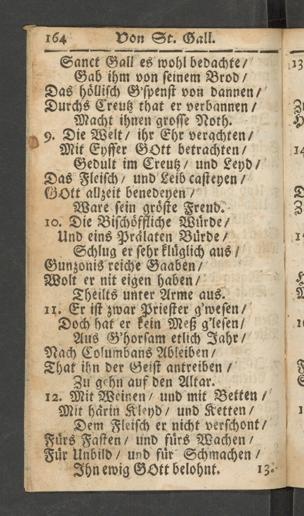 164 Von St. Gall.
Sanct Gall es wohl bedachte/
Gab ihm von seinem Brod/
Das höllisch G'spenst von dannen/
Durchs Creutz that er verbannen/
Macht ihnen grosse Noth.
9. Die Welt/ ihr Ehr verachten/
Mit Eyffer GOtt betrachten/
Gedult im Creutz/ und Leyd/
Das Fleisch/ und Leib casteyen/
GOtt allzeit benedeyen/
Ware sein gröste Freud.
10. Die Bischöffliche Würde/
Und eins Prälaten Bürde/
Schlug er sehr klüglich aus/
Gunzonis reiche Gaaben/
Wolt er nit eigen haben/
Theilts unter Arme aus.
11. Er ist zwar Priester g'wesen/
Doch hat er kein Meß g'lesen/
Aus G'horsam etlich Jahr/
Nach Columbans Ableiben/
That ihn der Geist antreiben/
Zu gehn auf den Altar.
12. Mit Weinen/ und mit Betten/
Mit härin Kleyd/ und Ketten/
Dem Fleisch er nicht verschont/
Fürs Fasten/ und fürs Wachen/
Für Unbild/ und für Schmachen/
Ihn ewig GOtt belohnt. 13.